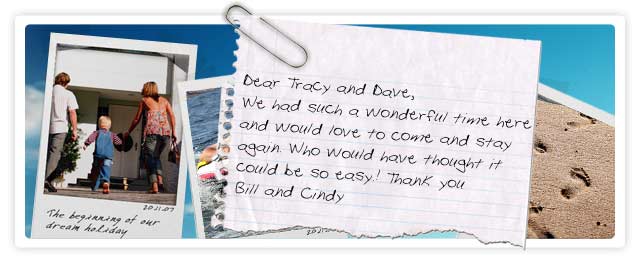 Dear Tracy and Dave,
We had such a wonderful time here
and would love to come and stay
again. Who would have thought it
could be so easy! Thank you
Bill and Cindy
20.11.07
The beginning of our
dream holiday